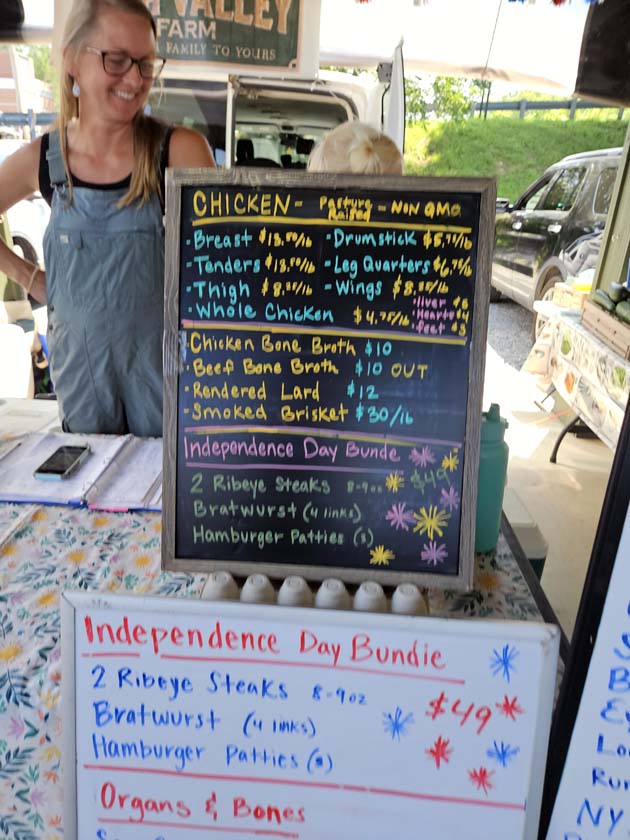 VALLEY
FARM
FAMILY TO YOURS
CHICKEN - Pasture Raised - NON GMO
- Breast $13.50/lb - Drumstick $5.75/lb
- Tenders $13.50/lb - Leg Quarters $6.75/lb
- Thigh $8.25/lb - Wings $8.25/lb
- Whole Chicken $4.75/lb
- liver $6
- Hearts $4
- feet $3
- Chicken Bone Broth $10
- Beef Bone Broth $10 OUT
- Rendered Lard $12
- Smoked Brisket $30/lb
Independence Day Bundle
2 Ribeye Steaks 8-9oz $49
Bratwurst (4 links)
Hamburger Patties (8)
Independence Day Bundle
2 Ribeye Steaks 8-9oz
$49
Bratwurst (4 links)
Hamburger Patties (8)
Organs & Bones
NY